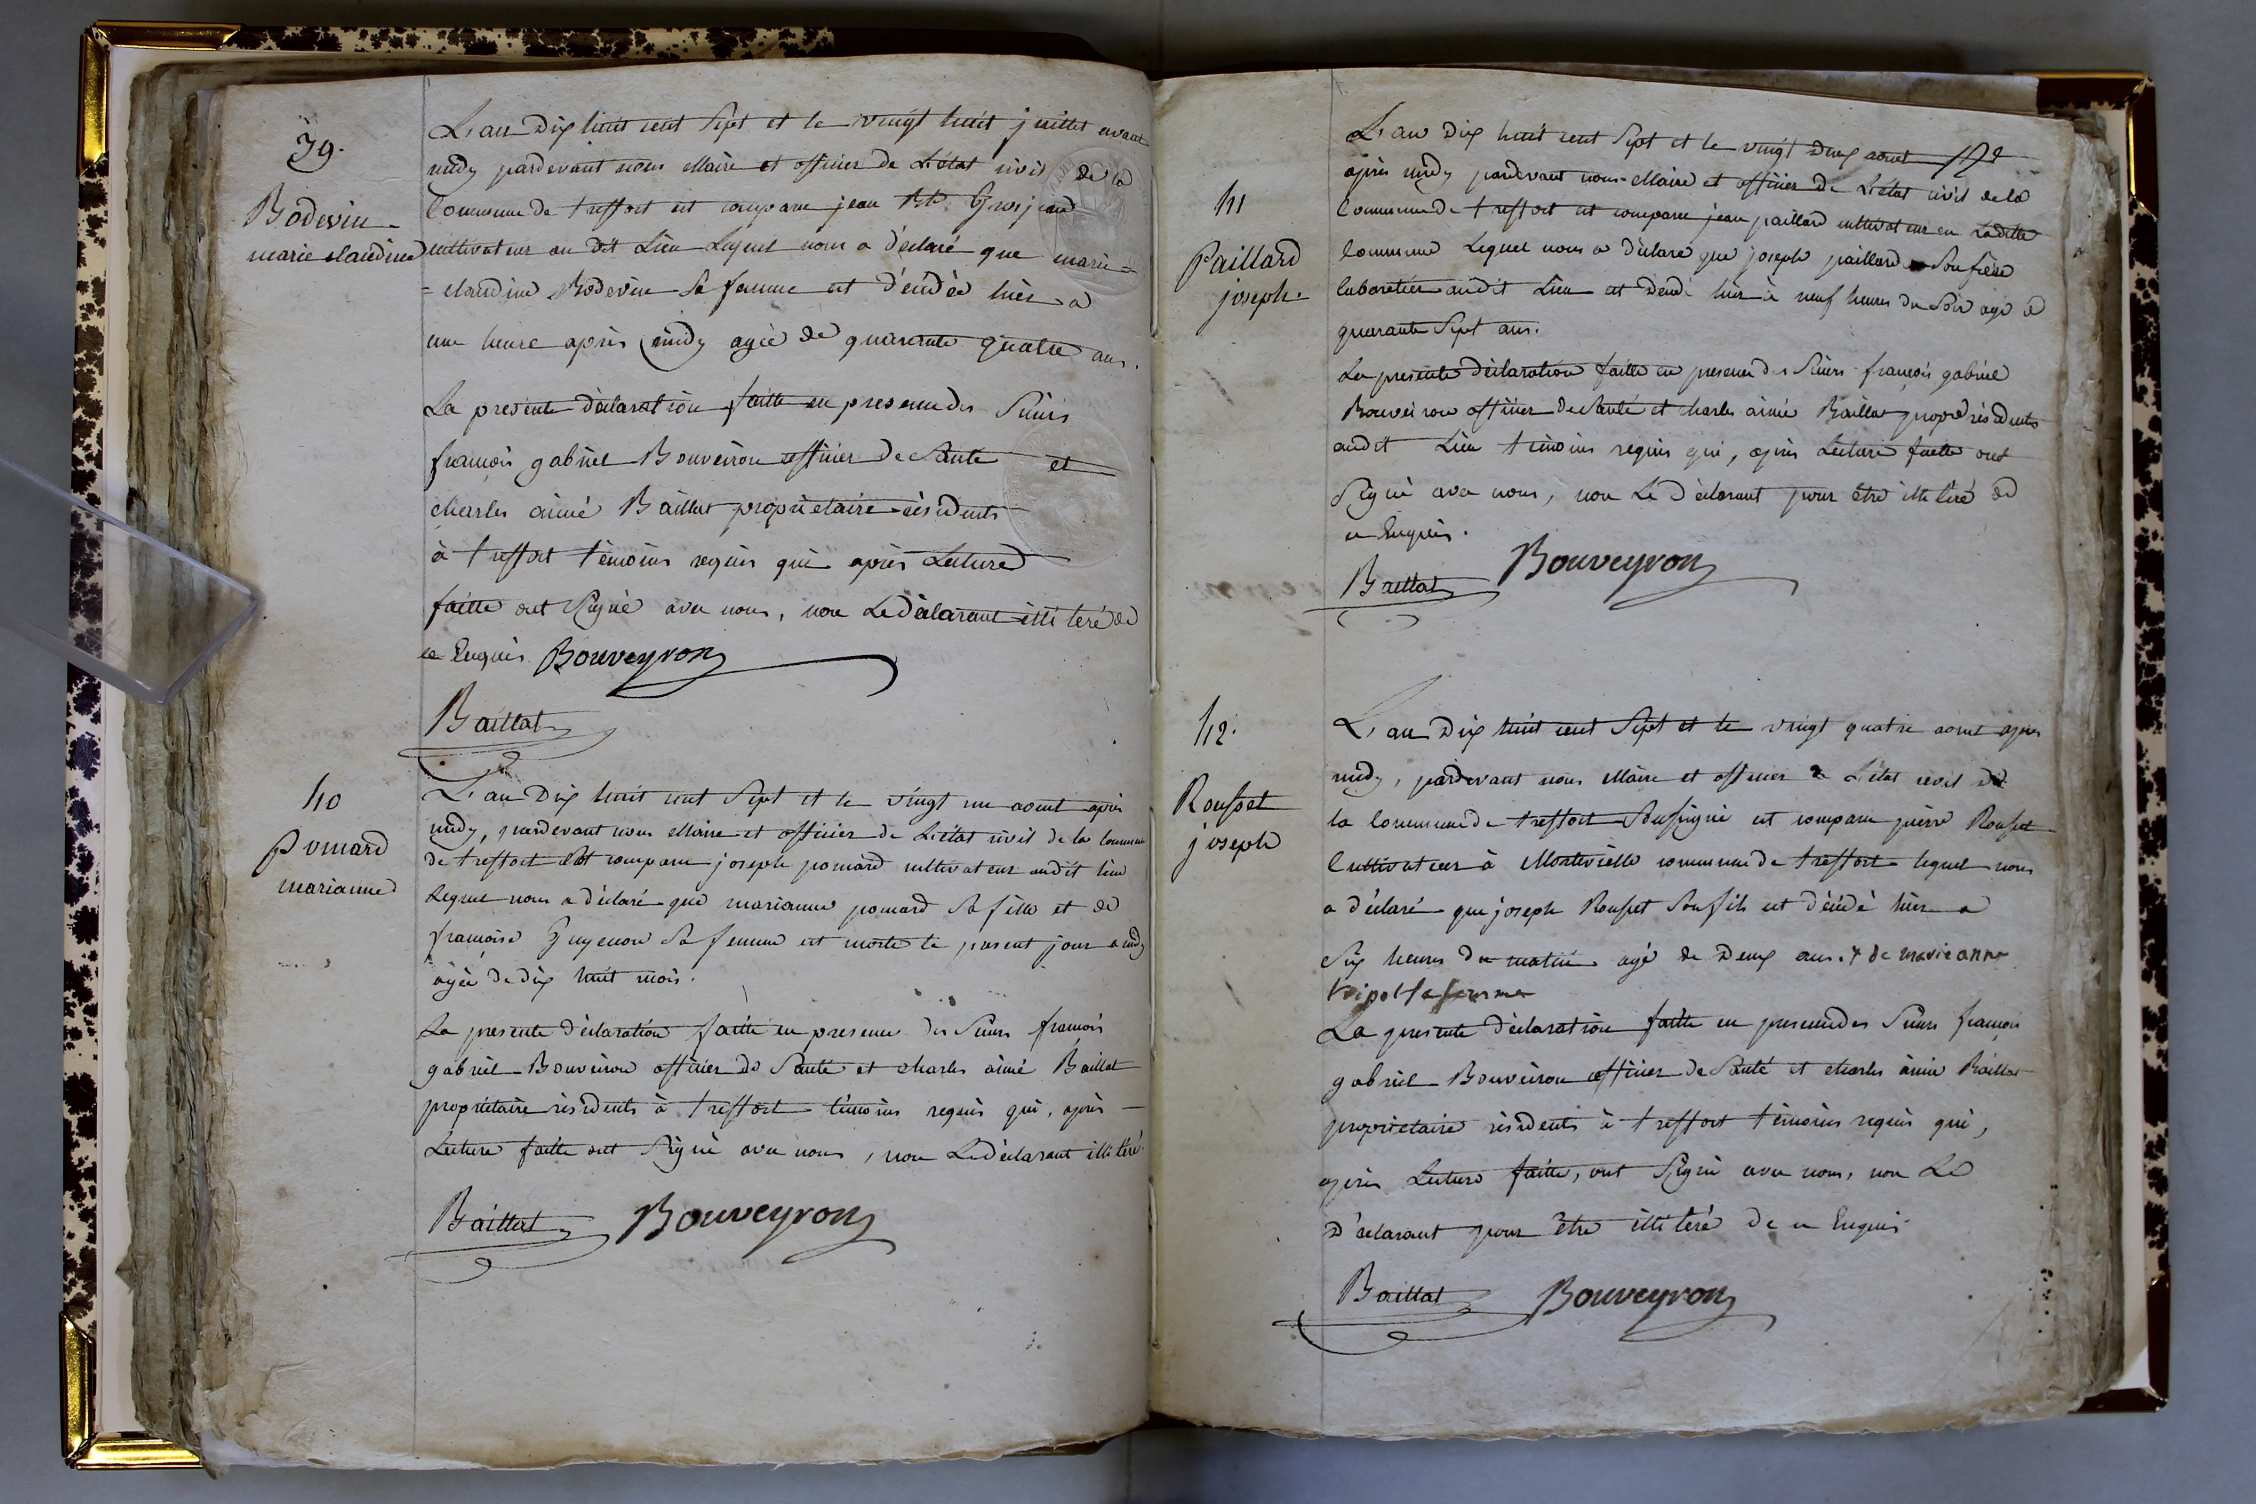 39.
Bodevin
marie claudine
L'an Dix huit cent Sept et le vingt huit juillet avant
midy pardevant nous Maire et officier de L'état civil de la
Commune de treffort est comparu jean Bte. Grosjean
cultivateur au dit Lieu Lequel nous a déclaré que marie =
= claudine Bodevin Sa femme est décédée hièr a
une heure après midy agée de quarante quatre ans.
La presente déclaration faitte en presence des Sieurs
françois gabriel Bouveiron officier de Santé et
charles aimé Baillat propriètaire résidents
à treffort témoins requis qui après Lecture
faitte ont Signé avec nous, non Le déclarant illitéré de
ce Enquis Bouveyron
Baillat
40
Pomard
marianne
L'an Dix huit cent Sept et le vingt un aout après
midy, pardevant nous Maire et officier de L'état civil de la Commune
de treffort Est comparu joseph pomard cultivateur audit lieu
Lequel nous a déclaré que marianne pomard Sa fille et de
françoise Guyenon Sa femme est morte le present jour a midy
agée de dix huit mois.
La presente déclaration faitte en presence des Sieurs françois
gabriel Bouveiron officier de Santé et charles aimé Baillat
propriétaire résidents à treffort témoins requis qui, après
Lecture faitte ont Signé avec nous, non Le déclarant illitéré.
Baillat Bouveyron
41
Paillard
joseph.
L'an Dix huit cent Sept et le vingt Deux aout
après midy pardevant nous Maire et officier de L'état civil de la
Commune de treffort est comparu jean paillard cultivateur en Laditte
Commune Lequel nous a déclaré que joseph paillard Son frère
cabaretier audit Lieu est décédé hier à neuf heures du Soir agé de
quarante Sept ans.
La presente déclaration faitte en presence des Sieurs françois gabriel
Bouveiron officier de Santé et charles aimé Baillat propre résidents
audit Lieu témoins requis qui, après Lecture faitte ont
Signé avec nous, non Le déclarant pour être illitéré de
ce Enquis.
Baillat Bouveyron
42.
Rousset
joseph
L'an Dix huit cent Sept et le vingt quatre aout après
midy, pardevant nous Maire et officier de L'état civil de
la Commune de treffort Soussigné est comparu pierre Rousset
Cultivateur à Montevielle commune de treffort lequel nous
a déclaré que joseph Rousset Son fils est décédé hièr a
Six heures du matin agé de Deux ans. + de marie anne
tripot sa femme
La presente déclaration faitte en presence des Sieurs françois
gabriel Bouveiron officier de Santé et charles aimé Baillat
propriètaire résidents à treffort témoins requis qui,
après Lecture faitte, ont Signé avec nous, non Le
Déclarant pour être illitéré de ce Enquis
Baillat Bouveyron